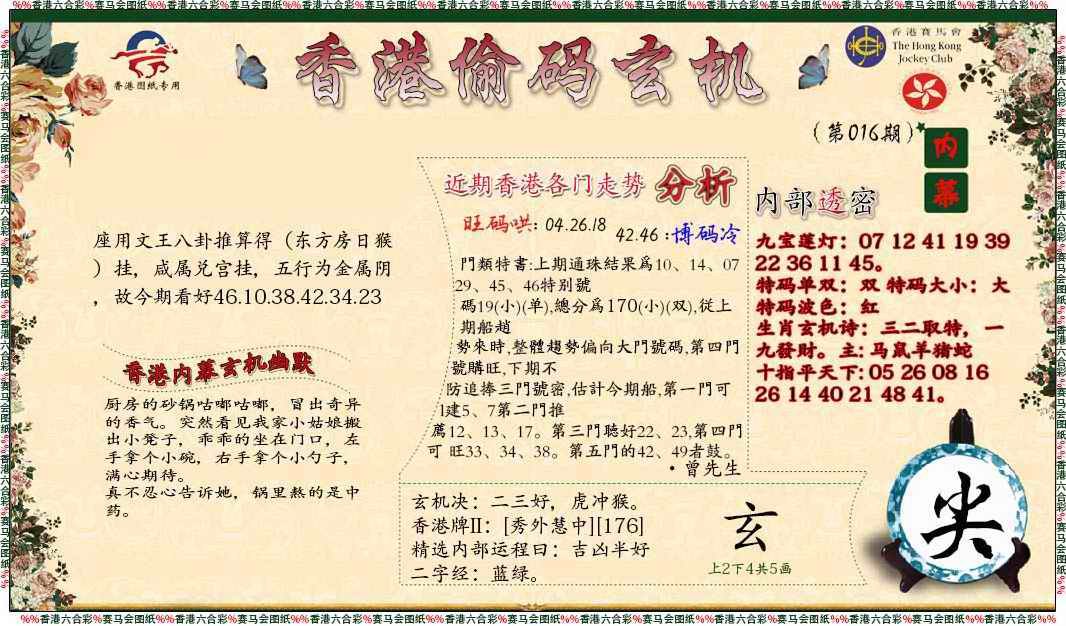 %%香港六合彩%赛马会图纸%%香港六合彩%赛马会图纸%%香港六合彩%赛马会图纸%%香港六合彩%赛马会图纸%%香港六合彩%赛马会图纸%%香港六合彩%赛马会图纸%%香港六合彩%赛马会图纸%%
香港图纸专用
香港偷码玄机
香港賽馬會
The Hong Kong
Jockey Club
（第016期）
内幕
座用文王八卦推算得（东方房日猴
）挂，咸属兑宫挂，五行为金属阴
，故今期看好46.10.38.42.34.23
香港内幕玄机幽默
厨房的砂锅咕嘟咕嘟，冒出奇异
的香气。突然看见我家小姑娘搬
出小凳子，乖乖的坐在门口，左
手拿个小碗，右手拿个小勺子，
满心期待。
真不忍心告诉她，锅里熬的是中
药。
近期香港各门走势 分析
旺码哄：04.26.18
42.46：博码冷
門類特書:上期通珠結果爲10、14、07
29、45、46特别號
碼19(小)(单),總分爲170(小)(双),從上
期船趟
勢來時,整體趨勢偏向大門號碼,第四門
號購旺,下期不
防追捧三門號密,估計今期船,第一門可
1建5、7第二門推
薦12、13、17。第三門聴好22、23,第四門
可 旺33、34、38。第五門的42、49者鼓。
·曾先生
玄机决：二三好，虎冲猴。
香港牌II：[秀外慧中][176]
精选内部运程曰：吉凶半好
二字经：蓝绿。
玄
上2下4共5画
内部透密
九宝莲灯：07 12 41 19 39
22 36 11 45。
特码单双：双 特码大小：大
特码波色：红
生肖玄机诗：三二取特，一
九發財。主: 马鼠羊猪蛇
十指平天下: 05 26 08 16
26 14 40 21 48 41。
尖
%%香港六合彩%赛马会图纸%%香港六合彩%赛马会图纸%%香港六合彩%赛马会图纸%%香港六合彩%赛马会图纸%%香港六合彩%赛马会图纸%%香港六合彩%赛马会图纸%%香港六合彩%赛马会图纸%%